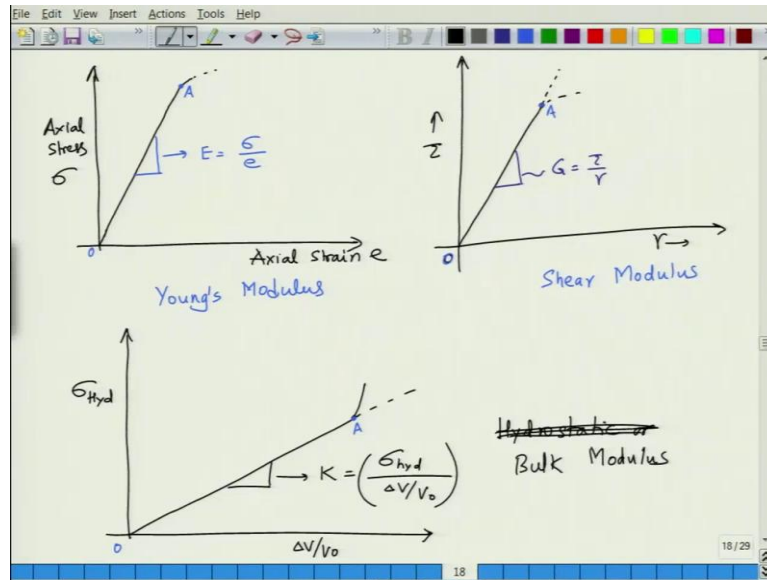 File Edit View Insert Actions Tools Help
B I
Axial
stress
σ
A
E = σ/e
O
Axial strain e
Young's Modulus
↑
τ
A
G = τ/γ
O
γ→
Shear Modulus
σHyd
A
K = (σhyd / ΔV/V₀)
O
ΔV/V₀
Hydrostatic or
Bulk Modulus
18/29
18